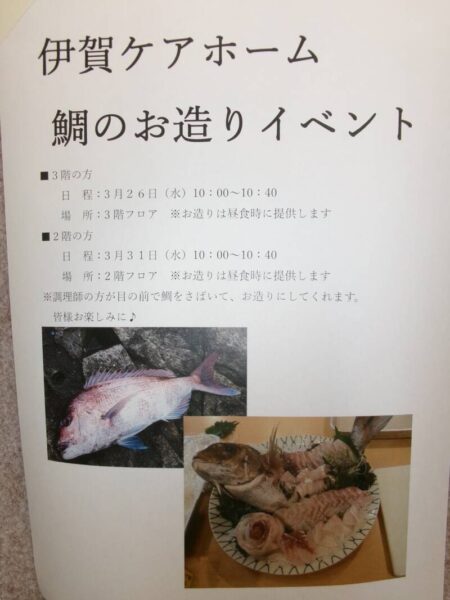 伊賀ケアホーム
鯛のお造りイベント
■３階の方
日　程：３月２６日（水）１０：００～１０：４０
場　所：３階フロア　※お造りは昼食時に提供します
■２階の方
日　程：３月３１日（水）１０：００～１０：４０
場　所：２階フロア　※お造りは昼食時に提供します
※調理師の方が目の前で鯛をさばいて、お造りにしてくれます。
皆様お楽しみに♪